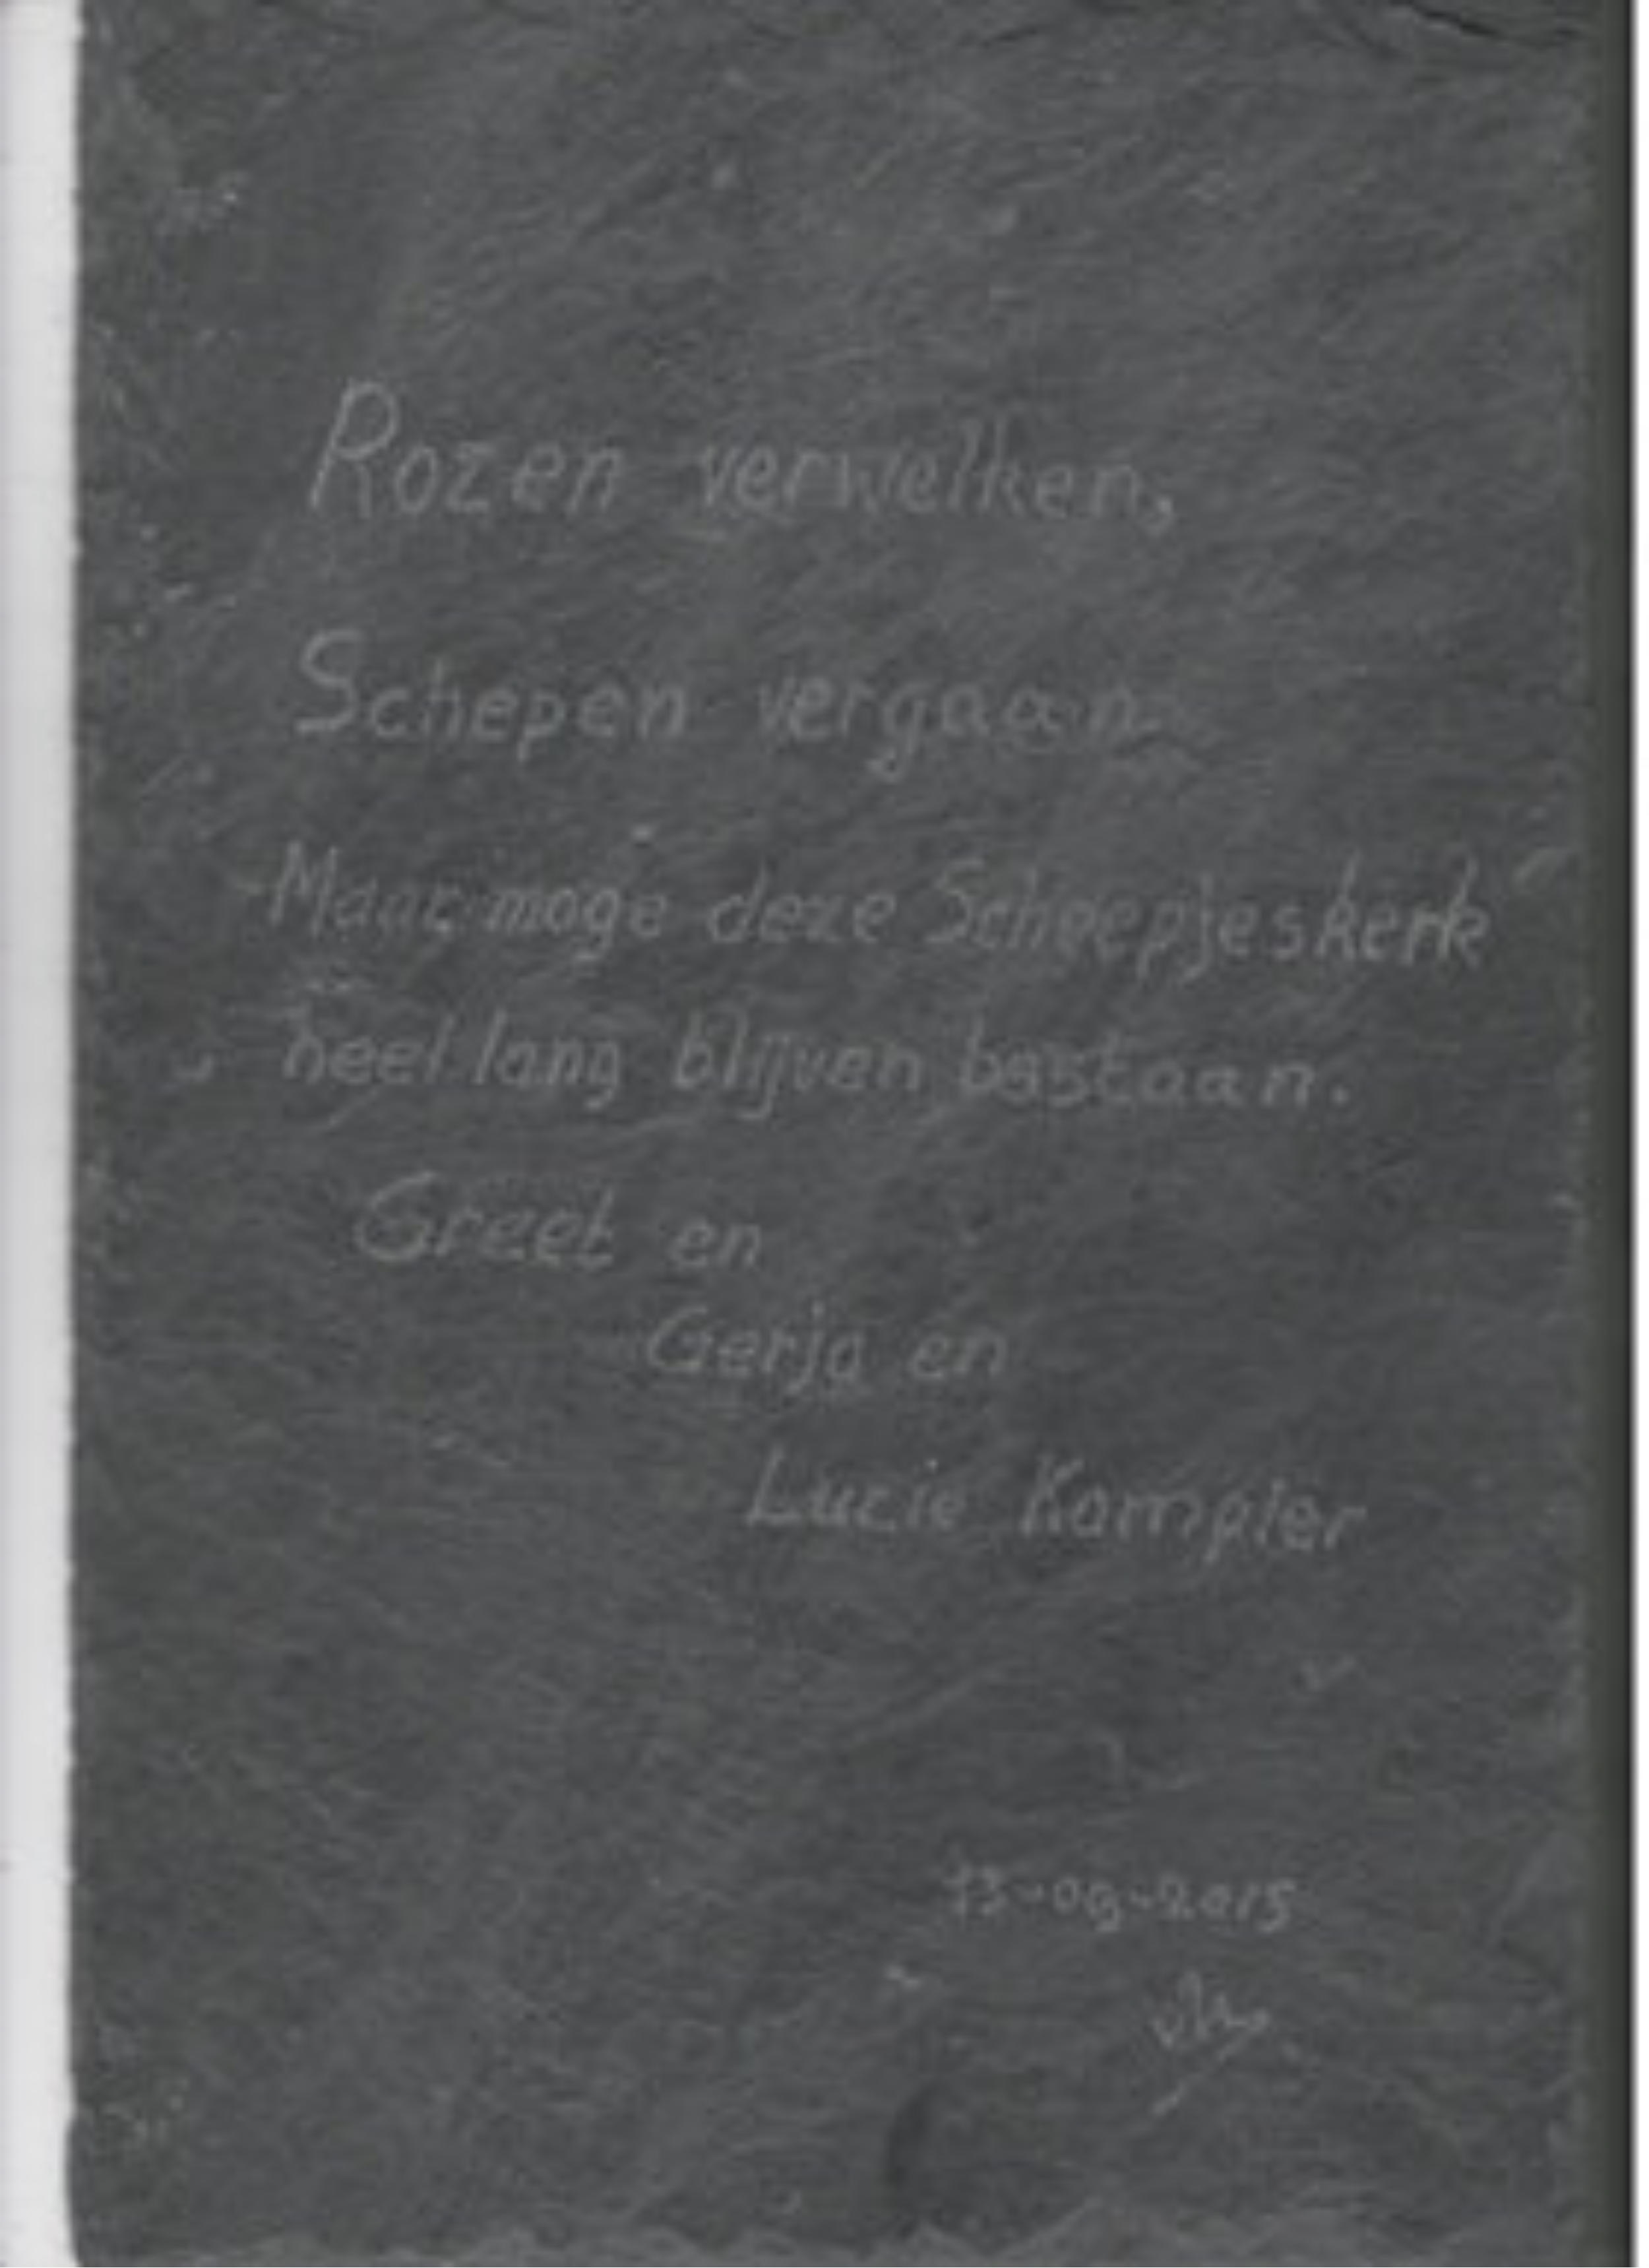 Rozen verwelken,
Schepen vergaan
Maar moge deze Scheepjeskerk
heel lang blijven bestaan.
Greet en
Gerja en
Lucie Kampier
13-09-2015